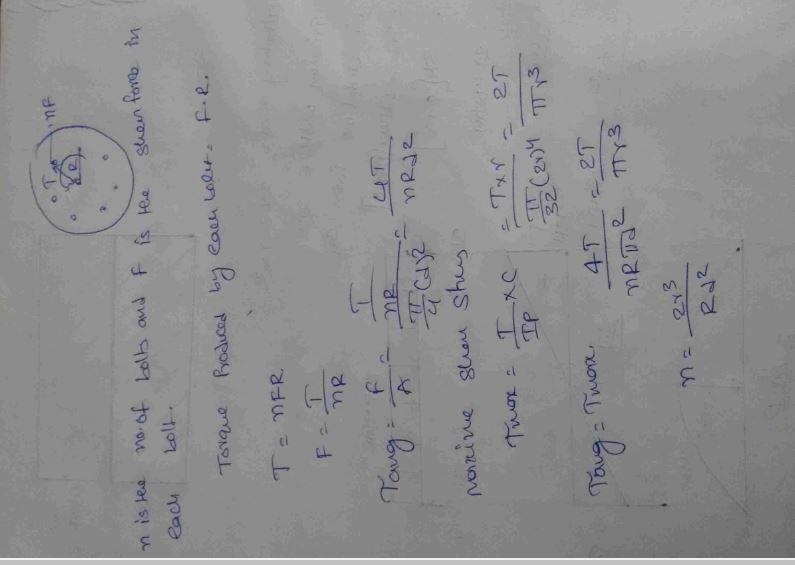 T nF
R
n is the no. of bolts and F is the shear force in
each bolt.
Torque Produced by each bolt = F.R.
T = nFR
F = T/nR
Tavg = F/A = (T/nR)/(π/4 (d)²) = 4T/nRd²
maxime shear stress
Tmax = T/IP × C = T×r/(π/32 (2r)⁴) = 2T/πr³
Tavg = Tmax. 4T/nRπd² = 2T/πr³
n = 2r³/Rd²